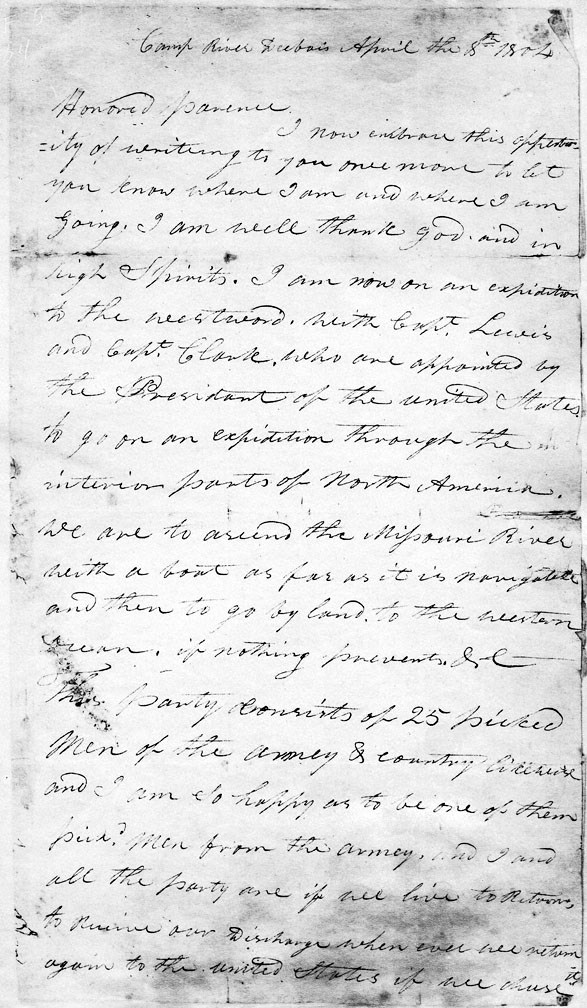 Camp River Deebois April the 8th 1804
Honored Parence.
I now embrace this oppertun-
=ity of writeing to you once more to let
you know where I am and where I am
going. I am well thank god. and in
high Spirits. I am now on an expidition
to the westward. with Capt. Lewis
and Capt. Clark, who are appointed by
the President of the united States
to go on an expidition through the
interior parts of North America.
We are to ascend the Missouri River
with a boat as far as it is navigable
and then to go by land. to the western
ocean, if nothing prevents. &C
This party consists of 25 picked
Men of the armey & country likewise
and I am So happy as to be one of them
pick'd Men from the armey, and I and
all the party are if we live to Return,
to Receive our Discharge when ever we return
again to the united States if we chuse